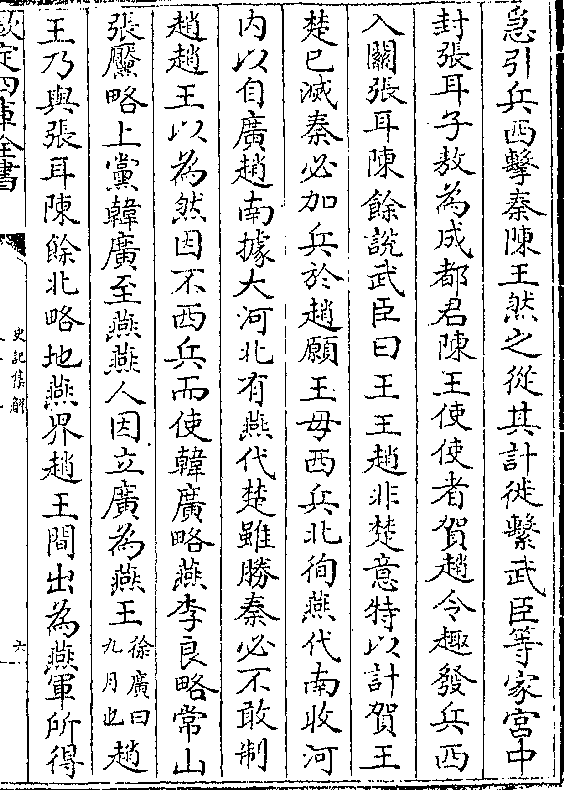 急引兵西擊秦陳王然之從其計徙繫武臣等家宮中
封張耳子敖為成都君陳王使使者賀趙令趣發兵西
入關張耳陳餘說武臣曰王王趙非楚意特以計賀王
楚已滅秦必加兵於趙願王毋西兵北徇燕代南收河
内以自廣趙南據大河北有燕代楚雖勝秦必不敢制
趙趙王以為然因不西兵而使韓廣略燕李良略常山
張黶略上黨韓廣至燕燕人因立廣為燕王徐廣曰九月也趙
王乃與張耳陳餘北略地燕界趙王間出為燕軍所得
欽定四庫全書
史記集解
六